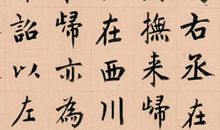 右丞在
撫来歸
在西川
歸亦為
詔以左